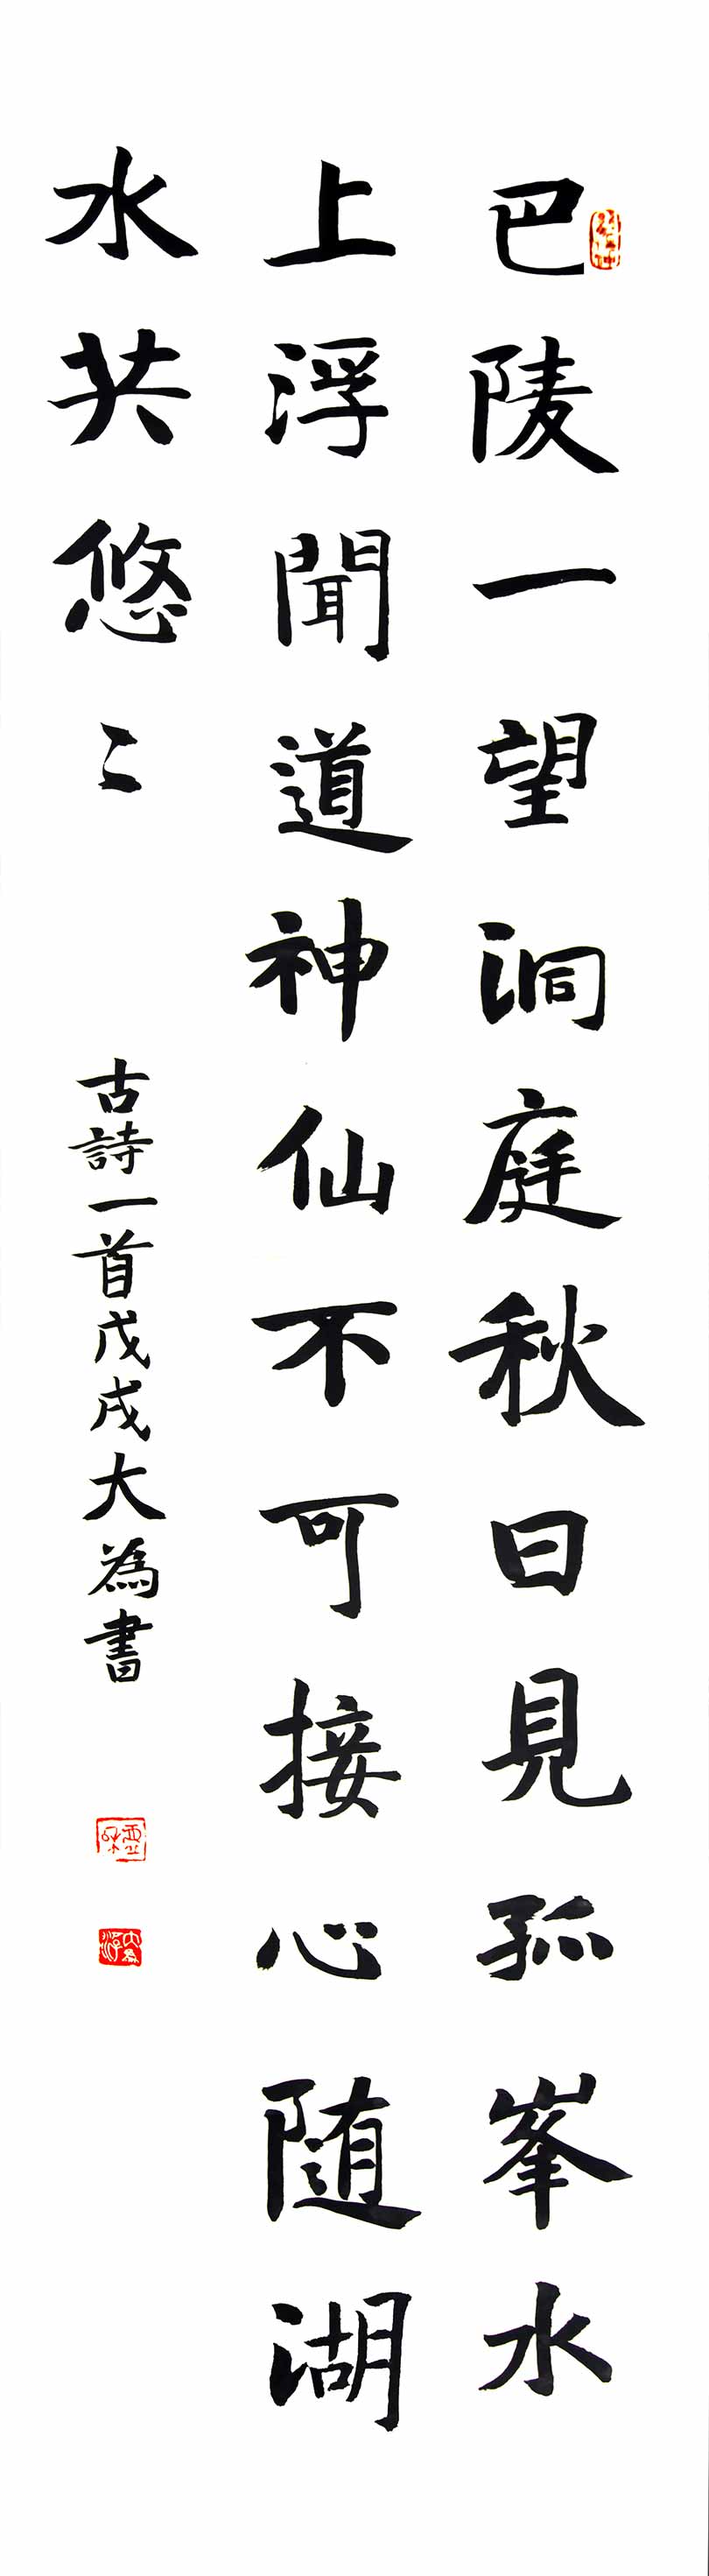 巴陵一望洞庭秋日見孤峯水
上浮聞道神仙不可接心随湖
水共悠〻
古詩一首戊戌大為書